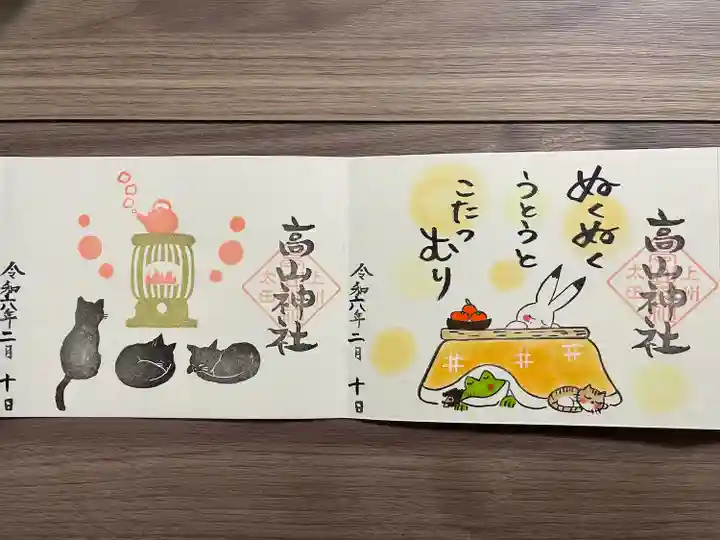 ぬくぬく
うとうと
こたつ
むり
高山神社
上州
太田
令和六年二月十日
高山神社
上州
太田
令和六年二月十日